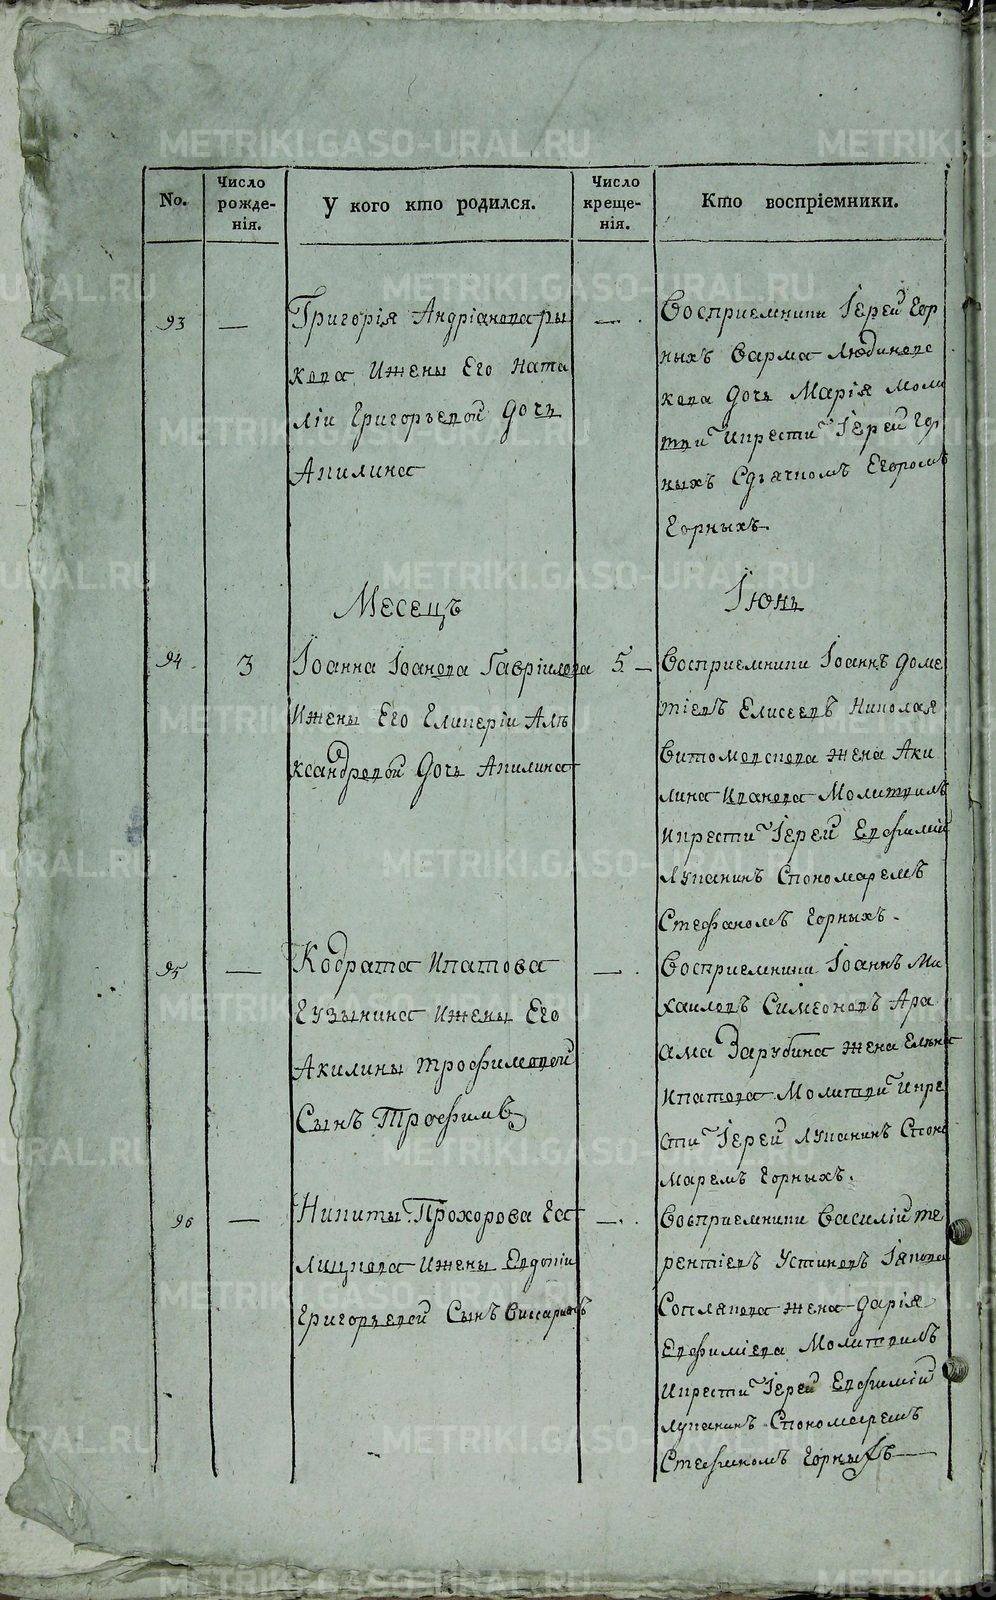 No.
Число рожде-нія.
У кого кто родился.
Число креще-нія.
Кто воспріемники.
93
—
Григорія Андріанова ры
кова Ижены Его Ната
ліи Григорьевой Дочь
Акилина
—
Восприемники Іерей Гор
ныхъ Варма Людинова
кова дочь Марія Моли
тви Икрести Іерей Гор
ныхъ Сдьячкомъ Егоромъ
Горныхъ.
Месецъ
Іюнь
94
3
Іоанна Іоанова Гавріилова
Ижены Его Гликеріи Але
ксандровой Дочь Акилина
5
Восприемники Іоаннъ Доме
тіевъ Елисеевъ Николая
Витомовскова жена Аки
лина Иванова Молитвилъ
Икрести Іерей Евфимій
Лукани нъ Спономаремъ
Стефаномъ Горныхъ.
95
—
Кодрата Ипатова
Гузынина Ижены Его
Акилины трофимовой
Сынъ Трофимъ
—
Восприемники Іоаннъ Ми
хаиловъ Симеоновъ Ара
ама Зарубина жена Елена
Ипатова Молитви Икре
сти Іерей Луканинъ Споно
Маремъ Горныхъ.
96
—
Никиты Прохорова Га
лицкова Ижены Евдокіи
Григорьевой Сынъ Висаріонъ
—
Восприемники Василій те
рентіевъ Устиновъ Іякова
Соплякова жена Дарія
Евфиміева Молитвилъ
Икрести Іерей Евфимій
Луканинъ Спономаремъ
Стефаномъ Горныхъ
METRIKI.GASO-URAL.RU